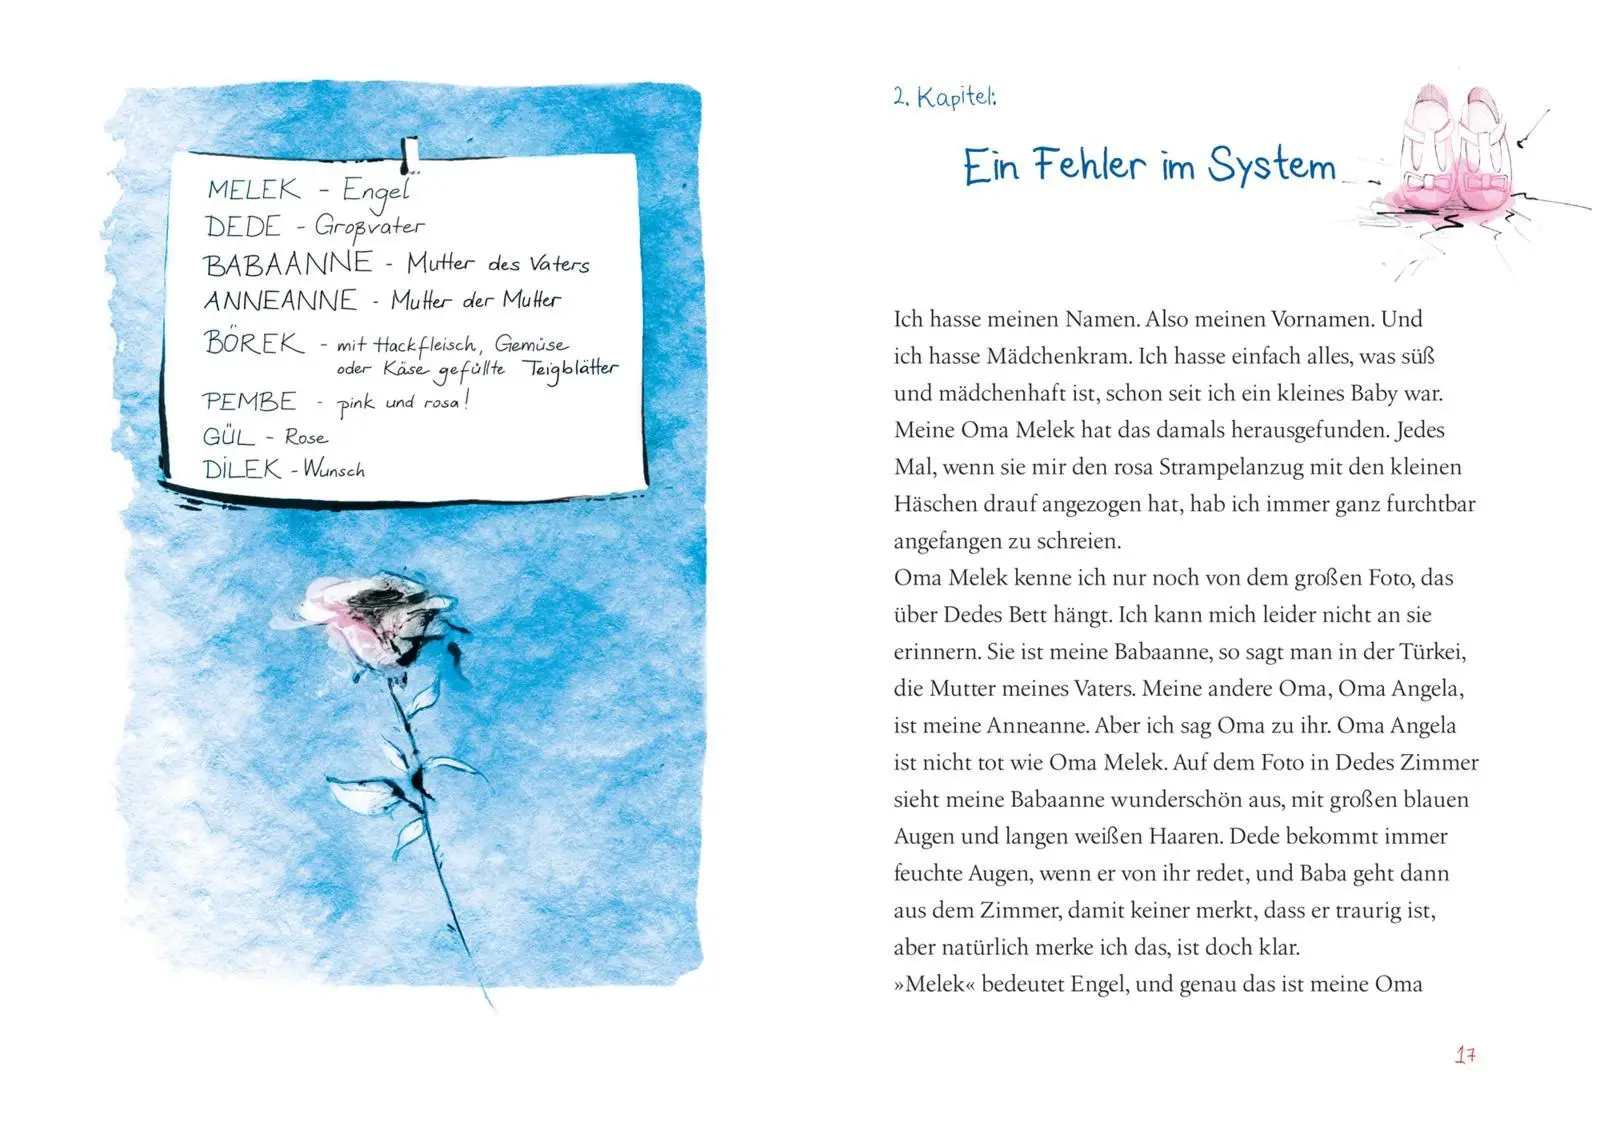 MELEK - Engel
DEDE - Großvater
BABAANNE - Mutter des Vaters
ANNEANNE - Mutter der Mutter
BÖREK - mit Hackfleisch, Gemüse
oder Käse gefüllte Teigblätter
PEMBE - pink und rosa!
GÜL - Rose
DİLEK - Wunsch
2. Kapitel:
Ein Fehler im System
Ich hasse meinen Namen. Also meinen Vornamen. Und
ich hasse Mädchenkram. Ich hasse einfach alles, was süß
und mädchenhaft ist, schon seit ich ein kleines Baby war.
Meine Oma Melek hat das damals herausgefunden. Jedes
Mal, wenn sie mir den rosa Strampelanzug mit den kleinen
Häschen drauf angezogen hat, hab ich immer ganz furchtbar
angefangen zu schreien.
Oma Melek kenne ich nur noch von dem großen Foto, das
über Dedes Bett hängt. Ich kann mich leider nicht an sie
erinnern. Sie ist meine Babaanne, so sagt man in der Türkei,
die Mutter meines Vaters. Meine andere Oma, Oma Angela,
ist meine Anneanne. Aber ich sag Oma zu ihr. Oma Angela
ist nicht tot wie Oma Melek. Auf dem Foto in Dedes Zimmer
sieht meine Babaanne wunderschön aus, mit großen blauen
Augen und langen weißen Haaren. Dede bekommt immer
feuchte Augen, wenn er von ihr redet, und Baba geht dann
aus dem Zimmer, damit keiner merkt, dass er traurig ist,
aber natürlich merke ich das, ist doch klar.
»Melek« bedeutet Engel, und genau das ist meine Oma
17